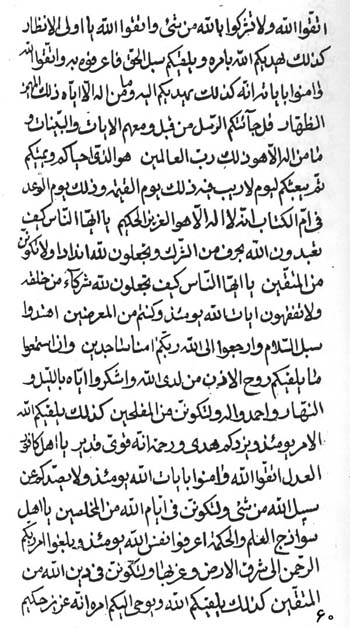 اتقوا الله ولا تشركوا بالله من شئ واتقوا الله يا اولى الانظار
كذلك يهديكم الله بامره ويلقيكم سبل الحق فاعرفوه به واتقوا الله
وامنوا باياته انه كذلك يهديكم اليه وما من اله الا اياه ذلك
الظهار قل جائتكم الرسل من قبل ومعهم الايات والبينات و
ما من اله الا هو ذلك رب العالمين هو الذى احياكم ويميتكم
ثم يبعثكم ليوم لا ريب فيه ذلك يوم القيمة وذلك يوم الوعد
فى ام الكتاب انه لا اله الا هو العزيز الحكيم يا ايها الناس كيف
تعبدون الله بحرف من الشرك وتجعلون لله اندادا ولا تكونن
من المتقين يا ايها الناس كيف تجعلون لله شركاء من خلقه
ولا تفقهون ايات الله يومئذ وكنتم من المعرضين اهتدوا
سبل السلام وارجعوا الى الله ربكم امنا ساجدين وان استمعوا
ما يلقيكم روح الاقدس من لدى الله واشكروا اياه بالليل و
النهار واحد واله ولتكونن من المفلحين كذلك يلقيكم الله
الامر يومئذ ويزدكم هدى ورحمة انه قوى قدير يا اهل
العدل اتقوا الله وامنوا بايات الله يومئذ ولا يصدكم عن
سبيل الله من شئ ولتكونن فى ايام الله من المخلصين يا اهل
سواذج العلم والحكمة اعرفوا نفس الله يومئذ وبلغوا امر ربكم
الرحمن الى شرق الارض وغربها ولتكونن فى دين الله من
المتقين كذلك يلقيكم الله ويوحى اليكم امره انه عزيز حكيم
۶۰